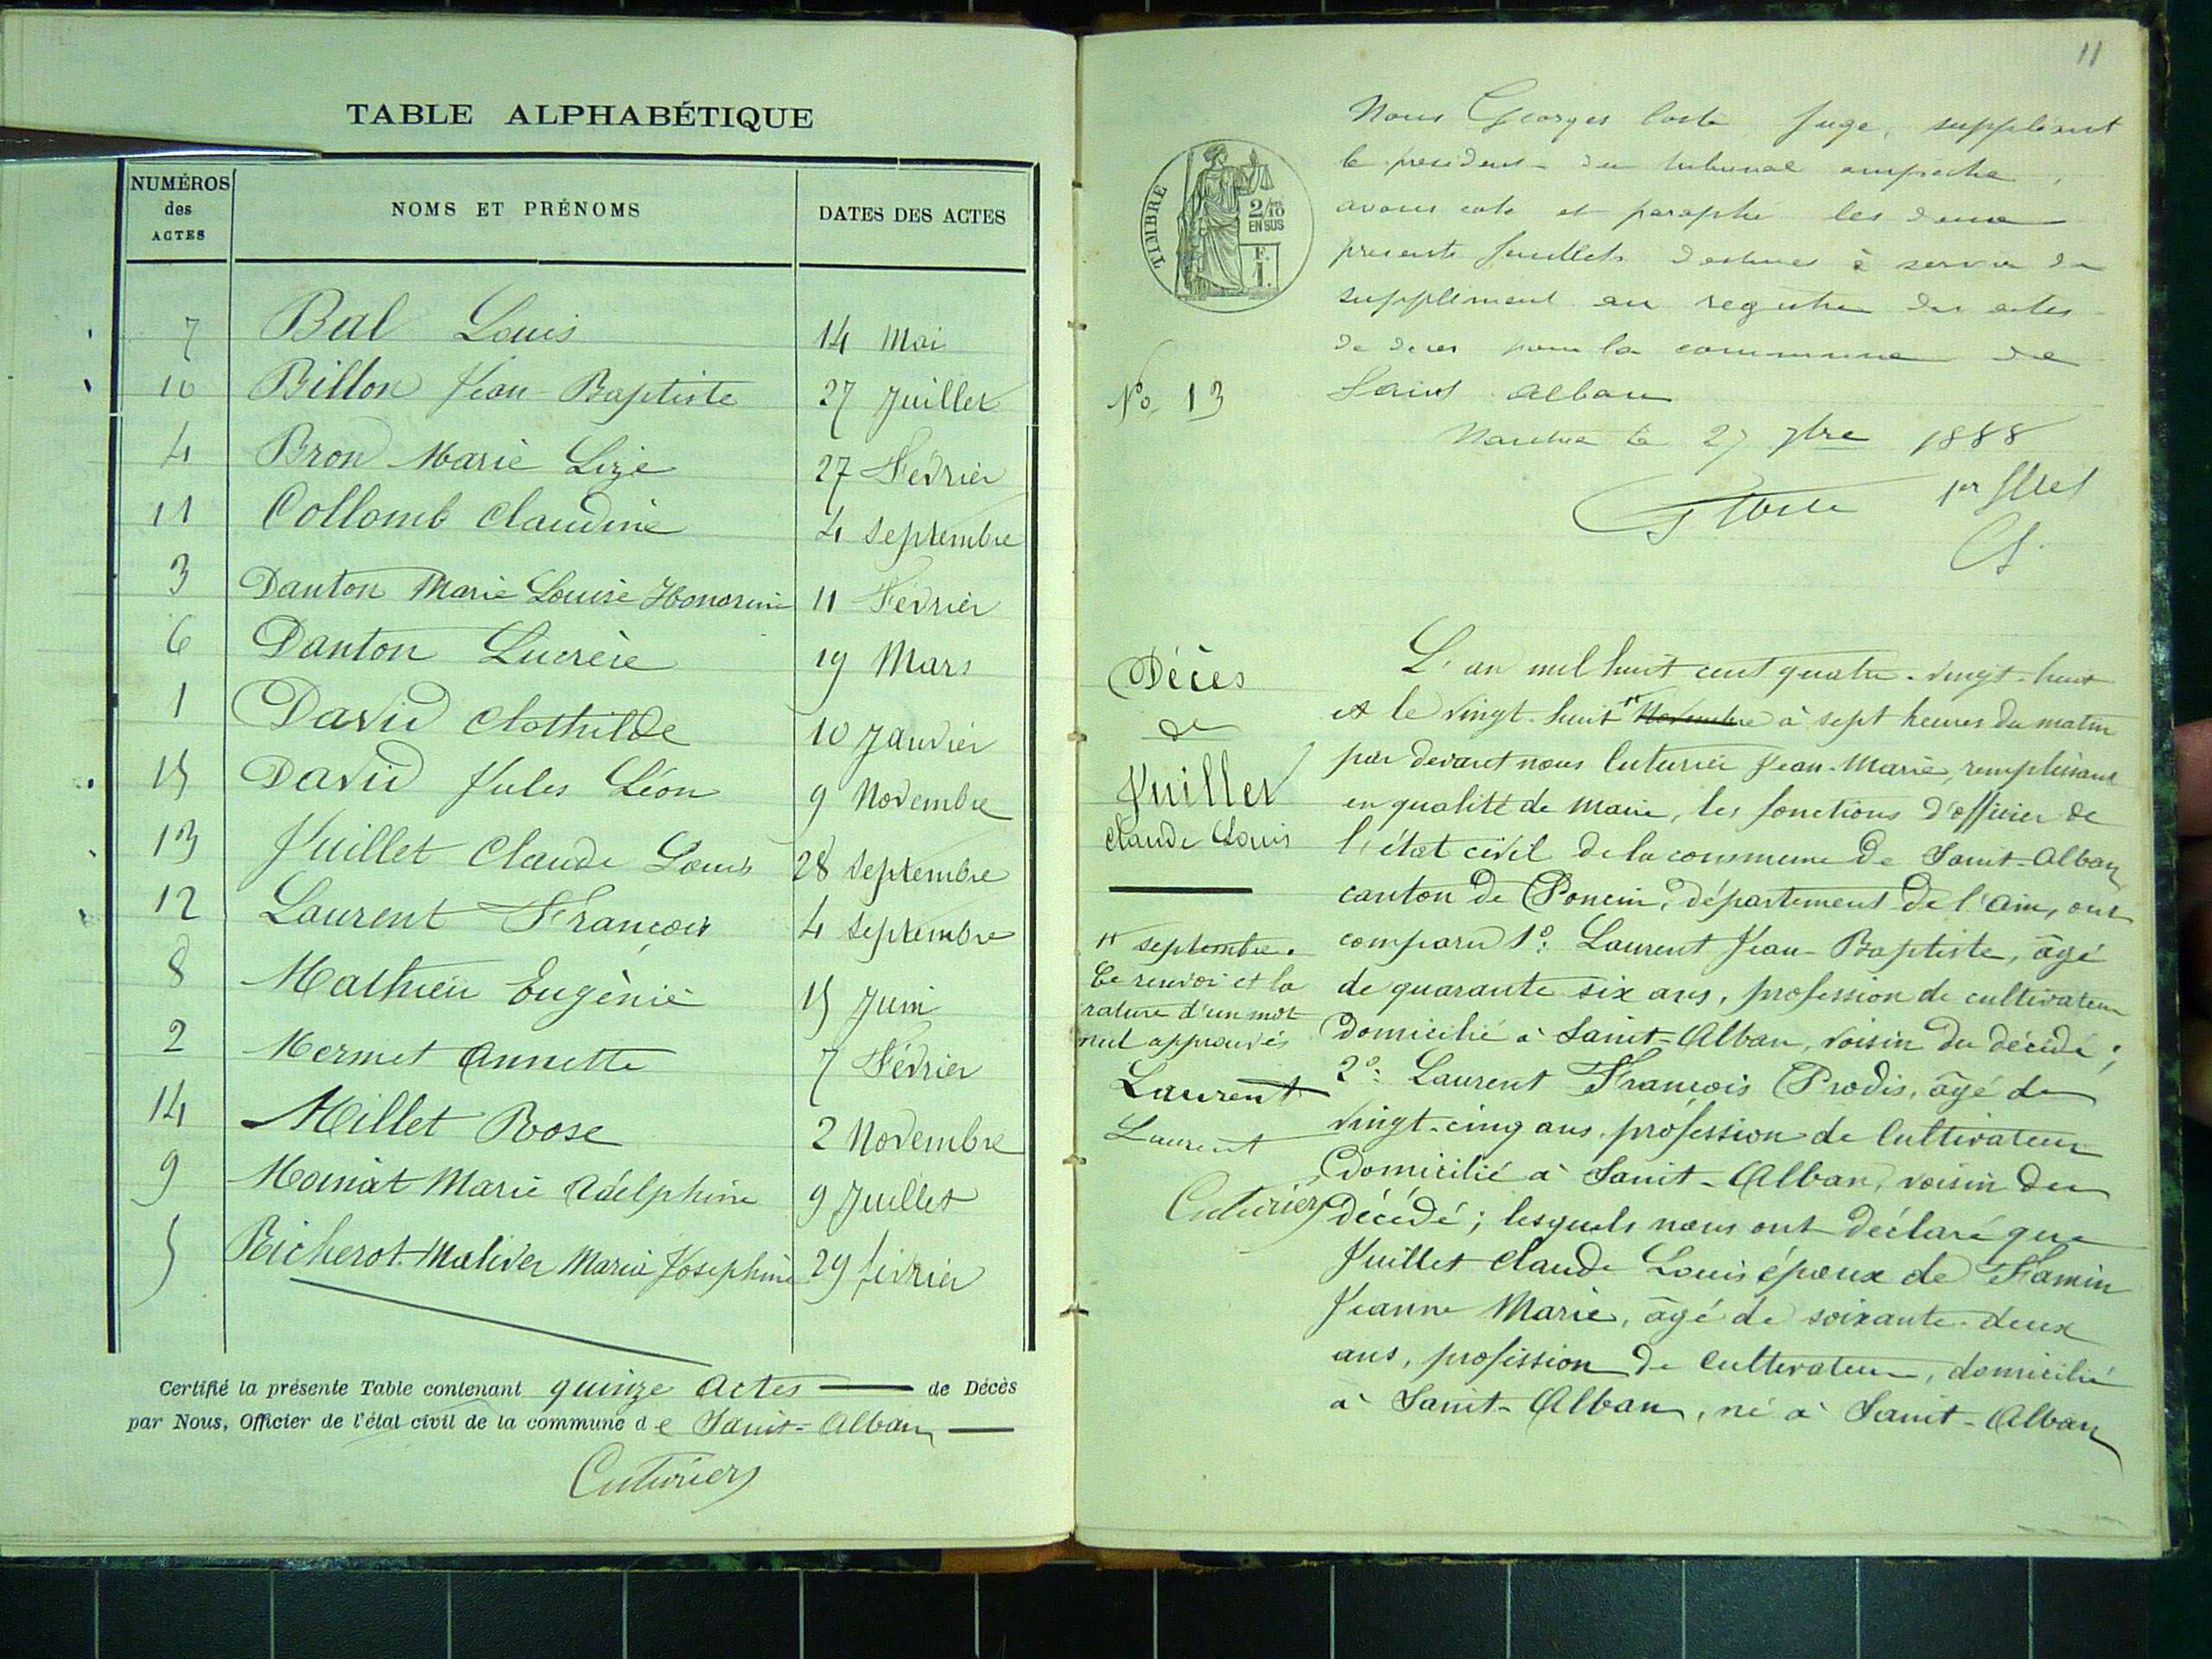 TABLE ALPHABÉTIQUE
NUMÉROS des ACTES
NOMS ET PRÉNOMS
DATES DES ACTES
7 Bal Louis 14 Mai
10 Billon Jean-Baptiste 27 Juillet
4 Bron Marie Lize 27 Février
11 Collomb Claudine 4 Septembre
3 Danton Marie Louise Honorine 11 Février
6 Danton Lucrèce 19 Mars
1 David Clothilde 10 Janvier
15 David Jules Léon 9 Novembre
13 Juillet Claude Louis 28 Septembre
12 Laurent François 4 Septembre
8 Mathieu Eugénie 15 Juin
2 Mermet Annette 7 Février
14 Millet Rose 2 Novembre
9 Moinat Marie Adelphine 9 Juillet
5 Richerot-Maliver Maria Joséphine 29 février
Certifié la présente Table contenant quinze Actes de Décès
par Nous, Officier de l'état civil de la commune de Saint-Alban
Cuturier
11
TIMBRE
2/10
EN SUS
F.
1.
Nous Georges Coste Juge, suppléant
le président du tribunal empêché,
avons coté et paraphé les deux
présents feuillets destinés à servir de
supplément au registre des actes
de décès pour la commune de
Saint Alban
Nantua le 27 7bre 1888
G Coste 1er fllet
No 13
Décès
de
Juillet
Claude Louis
septembre.
Ce renvoi et la
rature d'un mot
nul approuvés
Laurent
Laurent
Cuturier
L'an mil huit cent quatre-vingt-huit
et le vingt-huit Novembre à sept heures du matin
par devant nous Cuturier Jean-Marie, remplissant
en qualité de Maire, les fonctions d'officier de
l'état civil de la commune de Saint-Alban
canton de Poncin, département de l'Ain, ont
comparu 1o: Laurent Jean-Baptiste, âgé
de quarante six ans, profession de cultivateur
domicilié à Saint-Alban, voisin du décédé;
2o: Laurent François Prodis, âgé de
vingt-cinq ans, profession de Cultivateur
domicilié à Saint-Alban, voisin du
décédé; lesquels nous ont déclaré que
Juillet Claude Louis époux de Famin
Jeanne Marie, âgé de soixante-deux
ans, profession de Cultivateur, domicilié
à Saint-Alban, né à Saint-Alban